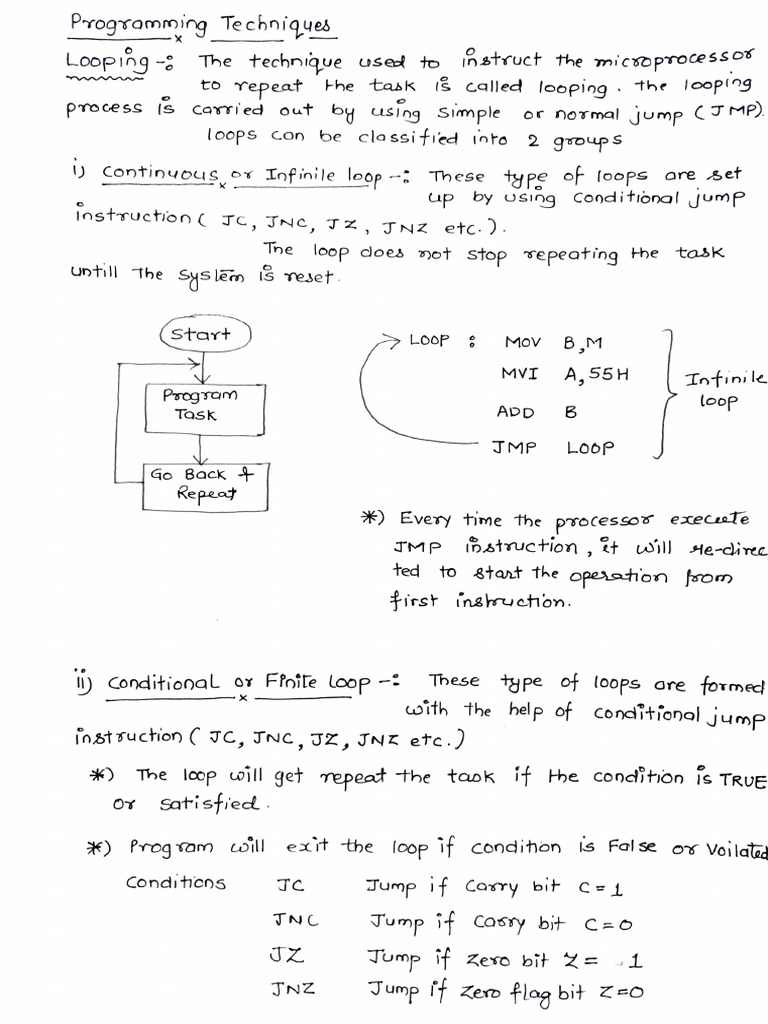 Programming Techniques
Looping -: The technique used to instruct the microprocessor
to repeat the task is called looping. The looping
process is carried out by using simple or normal jump (JMP).
loops can be classified into 2 groups
i) Continuous or Infinile loop -: These type of loops are set
up by using conditional jump
instruction ( JC, JNC, JZ, JNZ etc.).
The loop does not stop repeating the task
untill the system is reset.
Start
Program
Task
Go Back &
Repeat
LOOP : MOV B,M
MVI A,55H
ADD B
JMP LOOP
Infinile
loop
*) Every time the processor execute
JMP instruction, it will re-direc
ted to start the operation from
first instruction.
ii) Conditional or Finite Loop -: These type of loops are formed
with the help of conditional jump
instruction ( JC, JNC, JZ, JNZ etc.)
*) The loop will get repeat the task if the condition is TRUE
or satisfied.
*) Program will exit the loop if condition is False or Voilated
Conditions JC Jump if Carry bit C=1
JNC Jump if Carry bit C=0
JZ Jump if zero bit Z= 1
JNZ Jump if zero flag bit Z=0